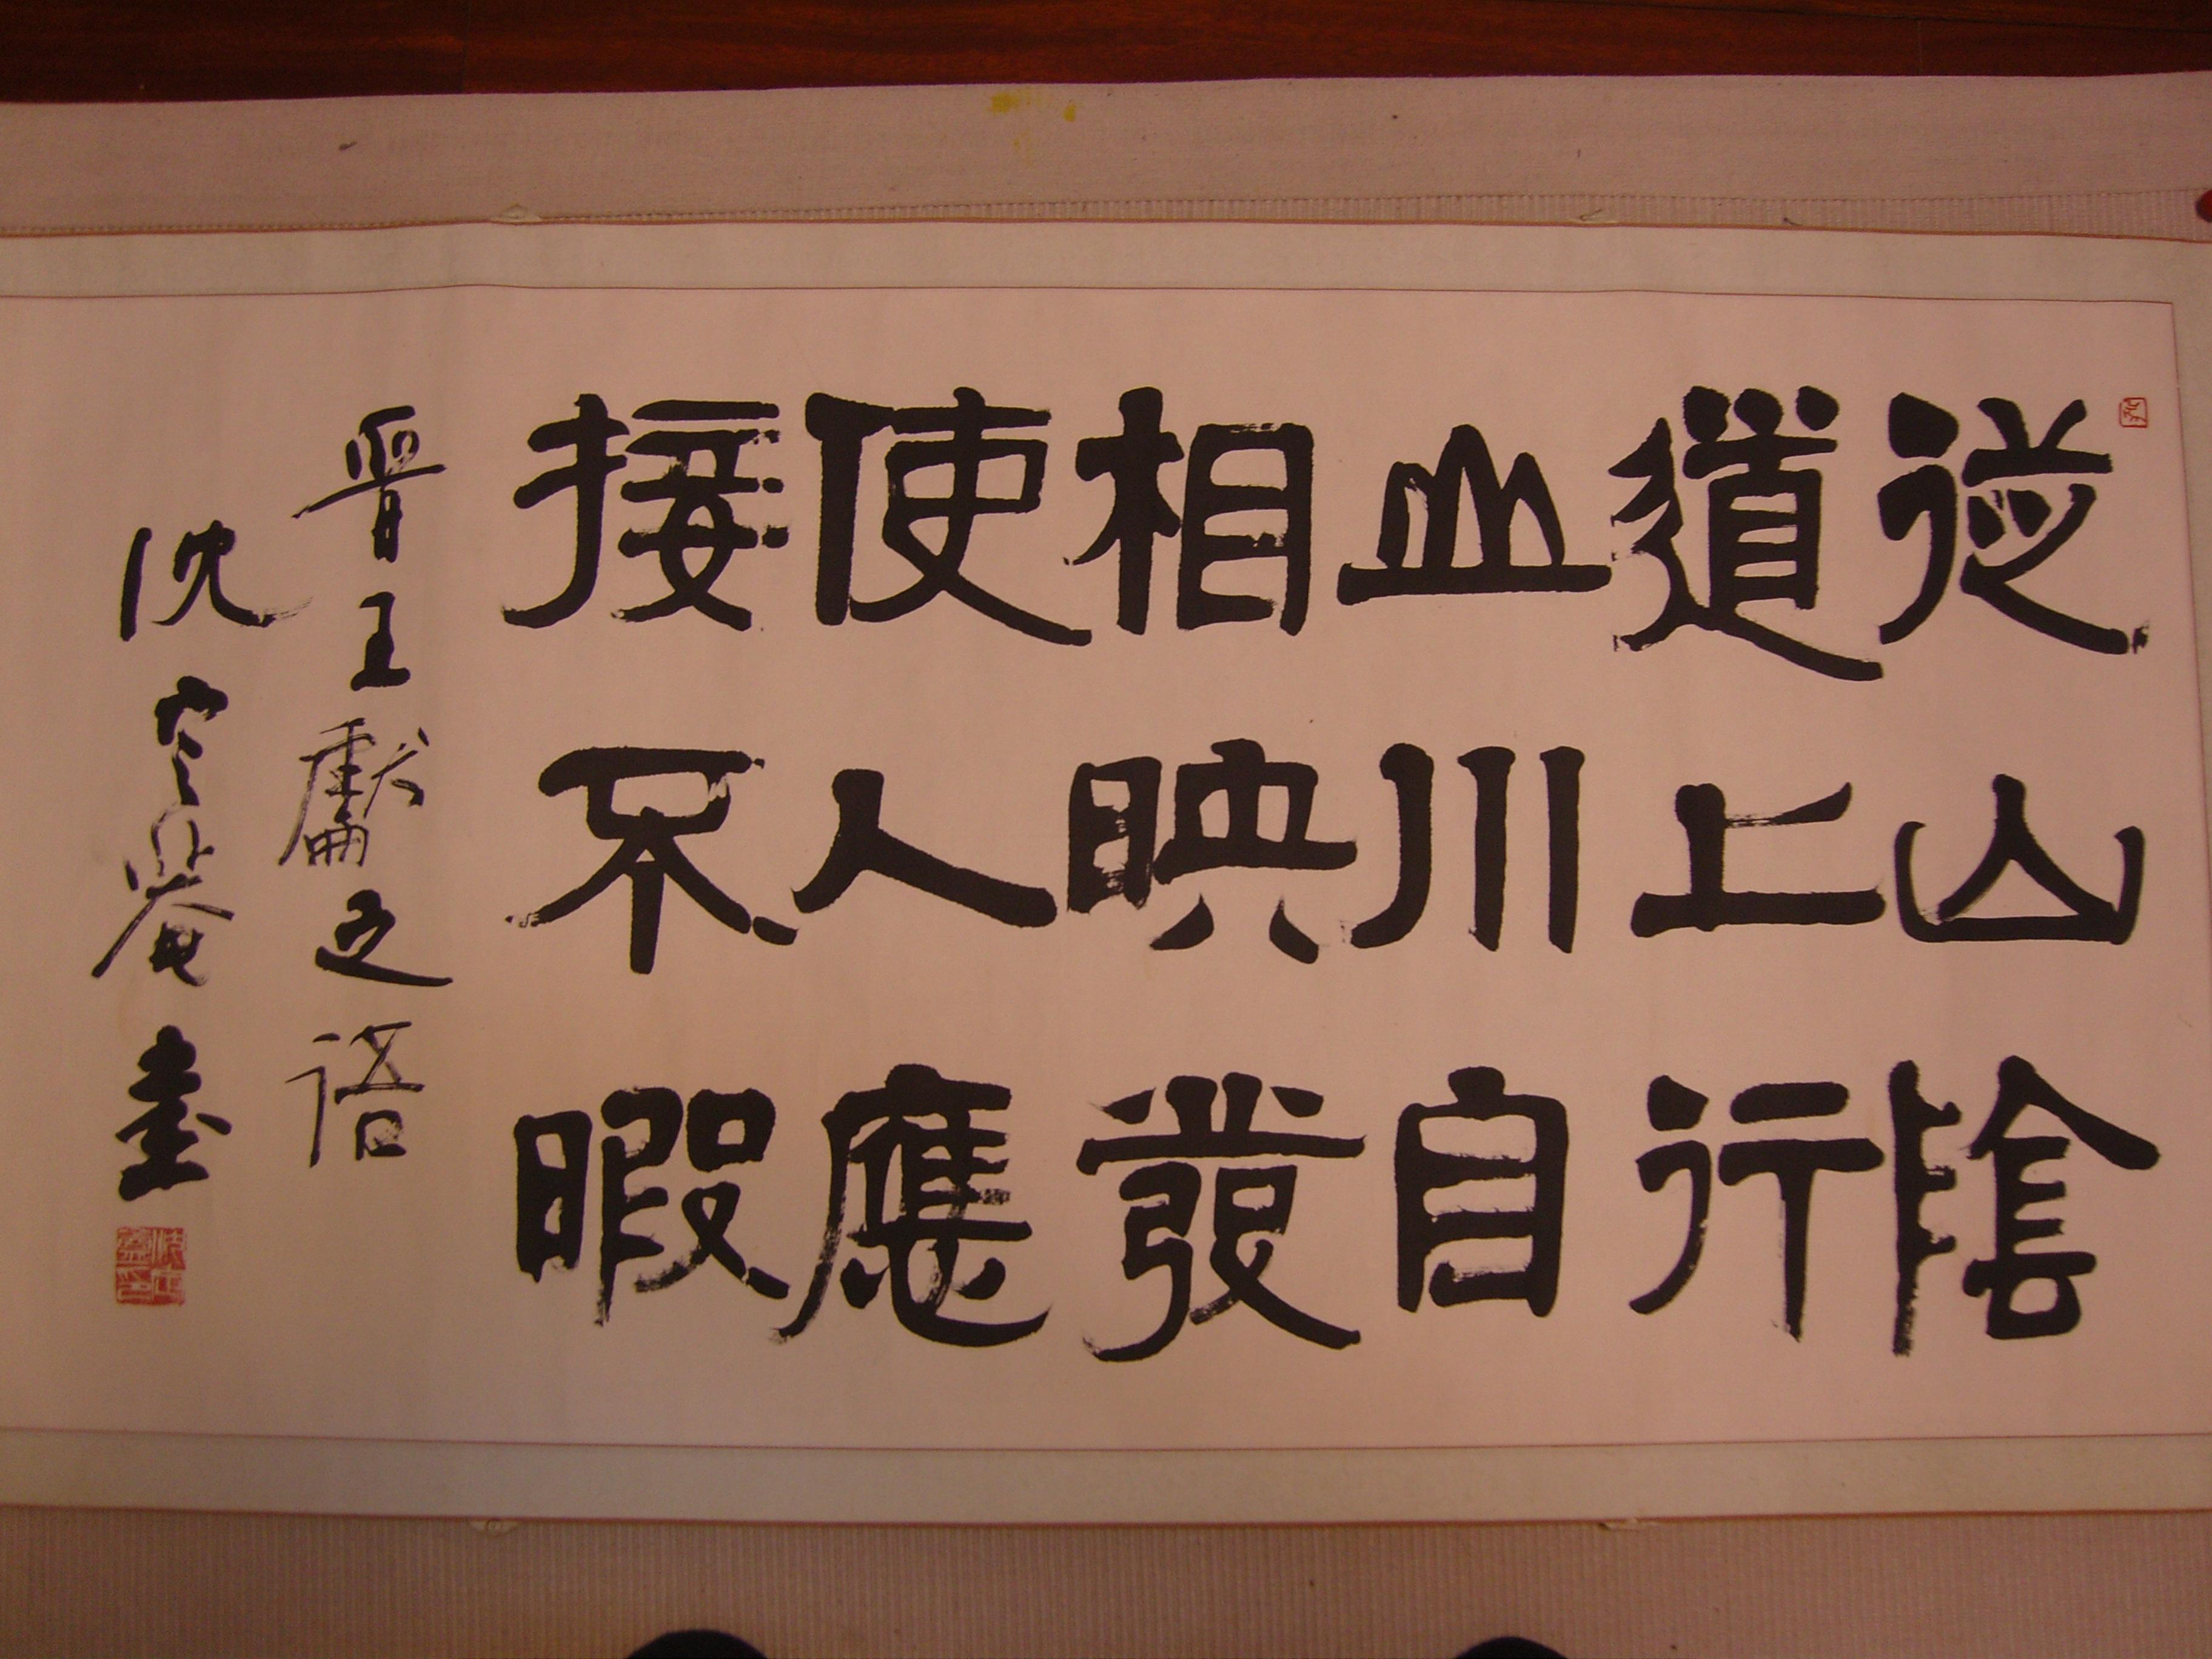 從山陰
道上行
山川自
相映發
使人應
接不暇
晉王獻之語
沈定菴書